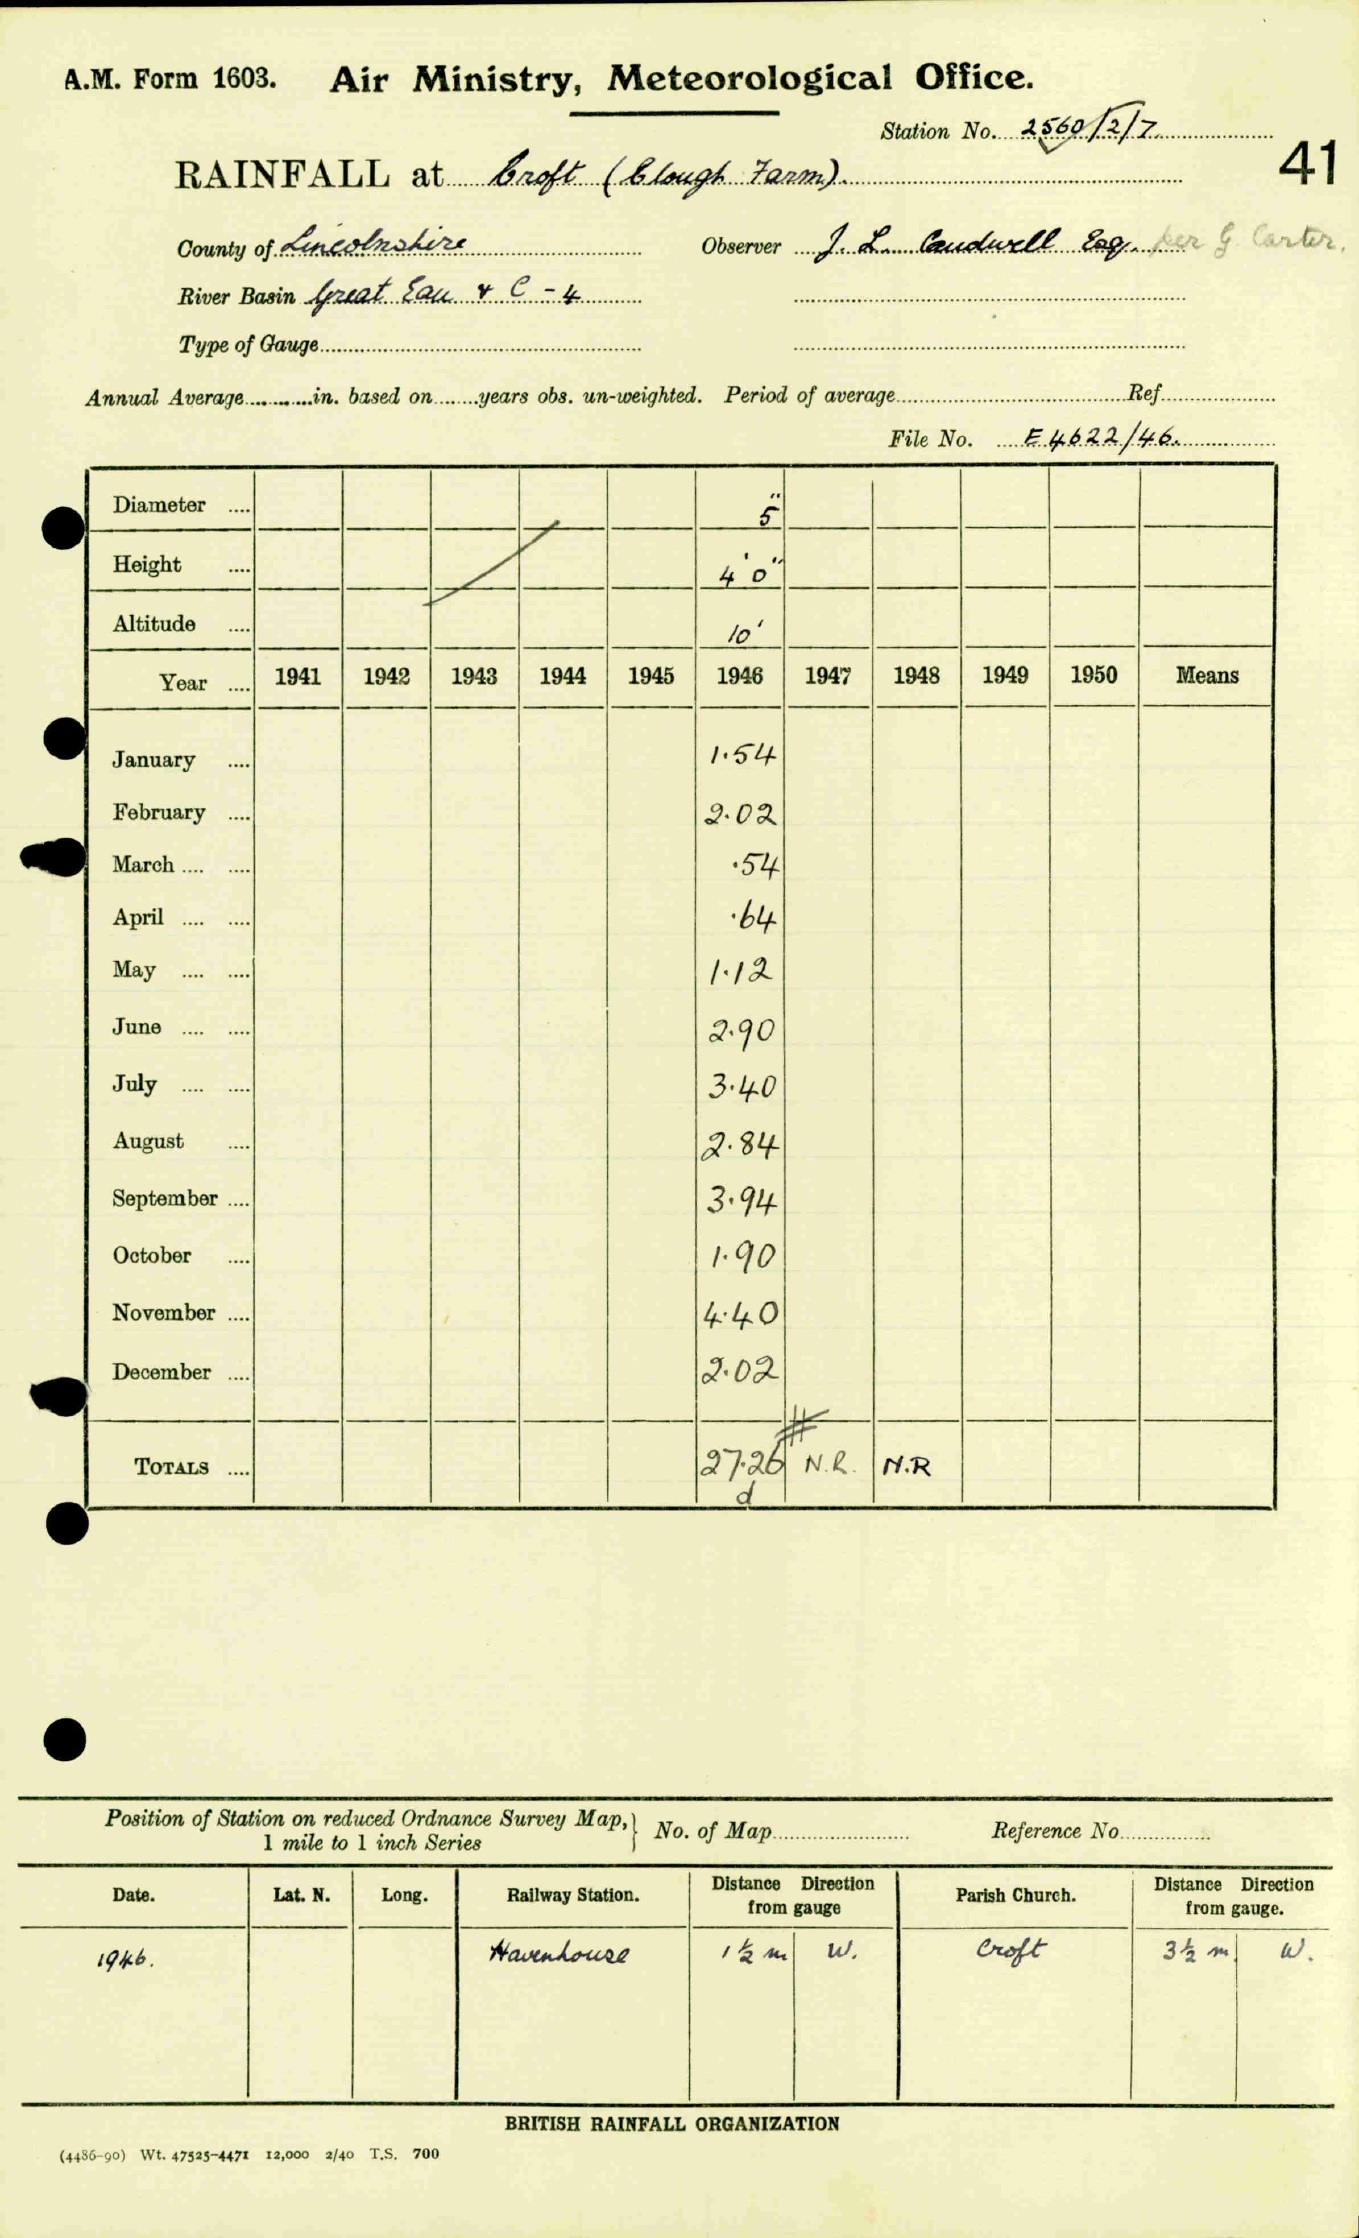 A.M. Form 1603. Air Ministry, Meteorological Office.
Station No. 2560/2/7
41
RAINFALL at Croft (Clough Farm).
County of Lincolnshire Observer J. L. Caudwell Esq. per G. Carter.
River Basin Great Eau & C - 4
Type of Gauge
Annual Average in. based on years obs. un-weighted. Period of average Ref.
File No. E 4622/46.
Diameter .... 5"
Height .... 4' 0"
Altitude .... 10'
Year .... 1941 1942 1943 1944 1945 1946 1947 1948 1949 1950 Means
January .... 1.54
February .... 2.02
March .... .... .54
April .... .... .64
May .... .... 1.12
June .... .... 2.90
July .... .... 3.40
August .... 2.84
September .... 3.94
October .... 1.90
November .... 4.40
December .... 2.02
TOTALS .... 27.26 N.R. N.R
d
Position of Station on reduced Ordnance Survey Map, 1 mile to 1 inch Series } No. of Map Reference No.
Date. Lat. N. Long. Railway Station. Distance Direction from gauge Parish Church. Distance Direction from gauge.
1946. Havenhouse 1½ m W. Croft 3½ m. W.
BRITISH RAINFALL ORGANIZATION
(4486-90) Wt. 47525-4471 12,000 2/40 T.S. 700